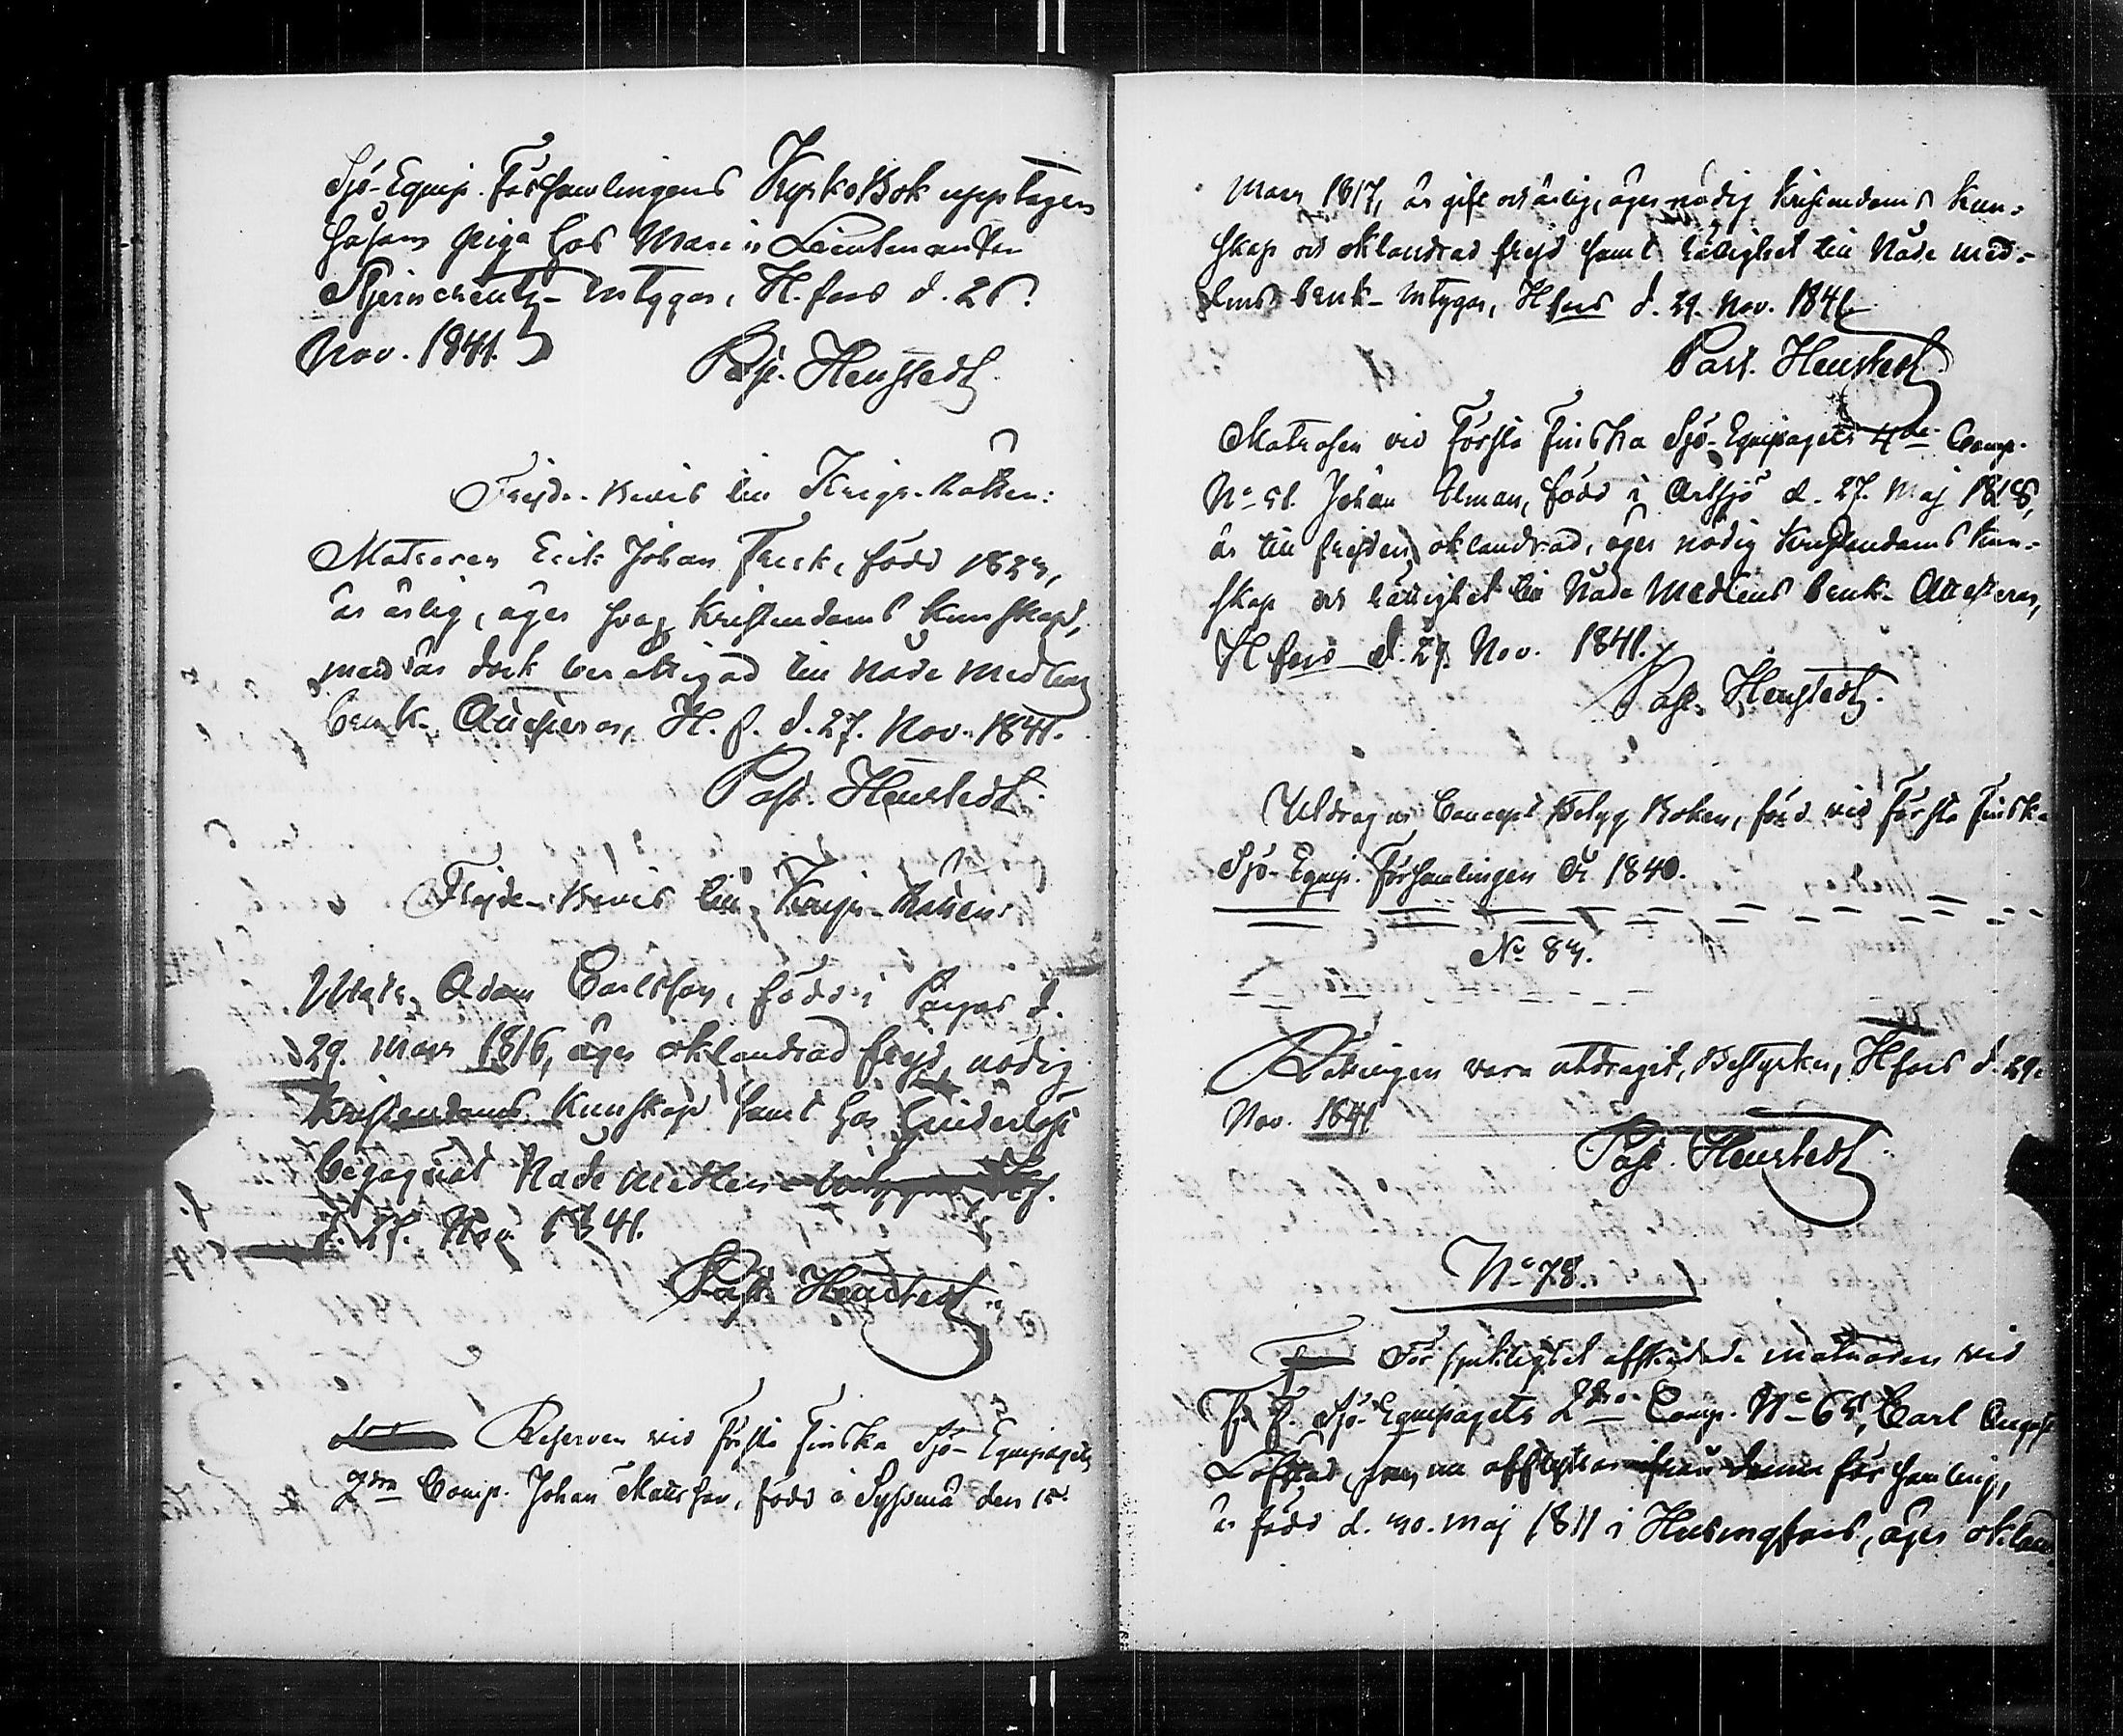 Sjö-Equip. Församlingens KyrkoBok upptagen
såsom piga hos Marin Lieutenanten
Stjerncreutz - intygas, H.fors d. 26.
Nov. 1841.
Past. Henstedt.
Frejde-Bevis till Krigs-Rätten:
Matrosen Erik Johan Frisk, född 1823,
är ärlig, äger svag Kristendoms Kunskap,
men är dock berättigad till Nåde Medlens
bruk. Attesteras, H. f. d. 27. Nov. 1841.
Past. Henstedt.
Frejde-Bevis till Krigs-Rätten:
Matr. Adam Carlsson, född i Pargas d.
29. Mars 1816, äger oklandrad frejd, nödig
Kristendoms Kunskap samt har hinderlöst
begagnat Nåde Medlen
d. 27. Nov. 1841.
Past. Henstedt.
Reserven vid Första Finska Sjö-Equipagets
Comp. Johan Mattsson, född i Syssmä den 15.
Mars 1817, är gift och ärlig, äger nödig Kristendoms Kun-
skap och oklandrad frejd samt rättighet till Nåde med-
lens bruk - intygas, H.fors d. 29. Nov. 1841.
Past. Henstedt.
Matrosen vid Första Finska Sjö-Equipagets 4de Comp.
No 51. Johan Alman, född i Artsjö d. 27. Maj 1818,
är till frejden oklandrad, äger nödig Kristendoms kun-
skap och rättighet till Nåde Medlens bruk. Attesteras,
H.fors d. 29. Nov. 1841.
Past. Henstedt.
Utdrag ur Concept Betyg Boken, förd vid Första Finska
Sjö-Equip. Församlingen År 1840.
No 83.
Riktigen vara utdraget, Bestyrker, H.fors d. 29.
Nov. 1841
Past. Henstedt.
No 78.
För sjuklighet afskedade matrosen vid
F. F. Sjö-Equipagets 2dra Comp. No 65, Carl August
Löfstad, som nu afflyttar ifrån denna församling,
är född d. 30. Maj 1811 i Helsingfors, äger oklan-